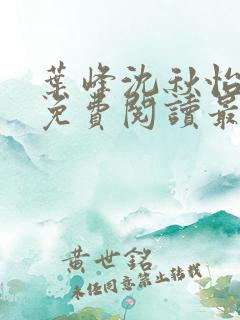 葉峰沈秋怡
免費閱讀最
黃世銘
未经同意禁止转载